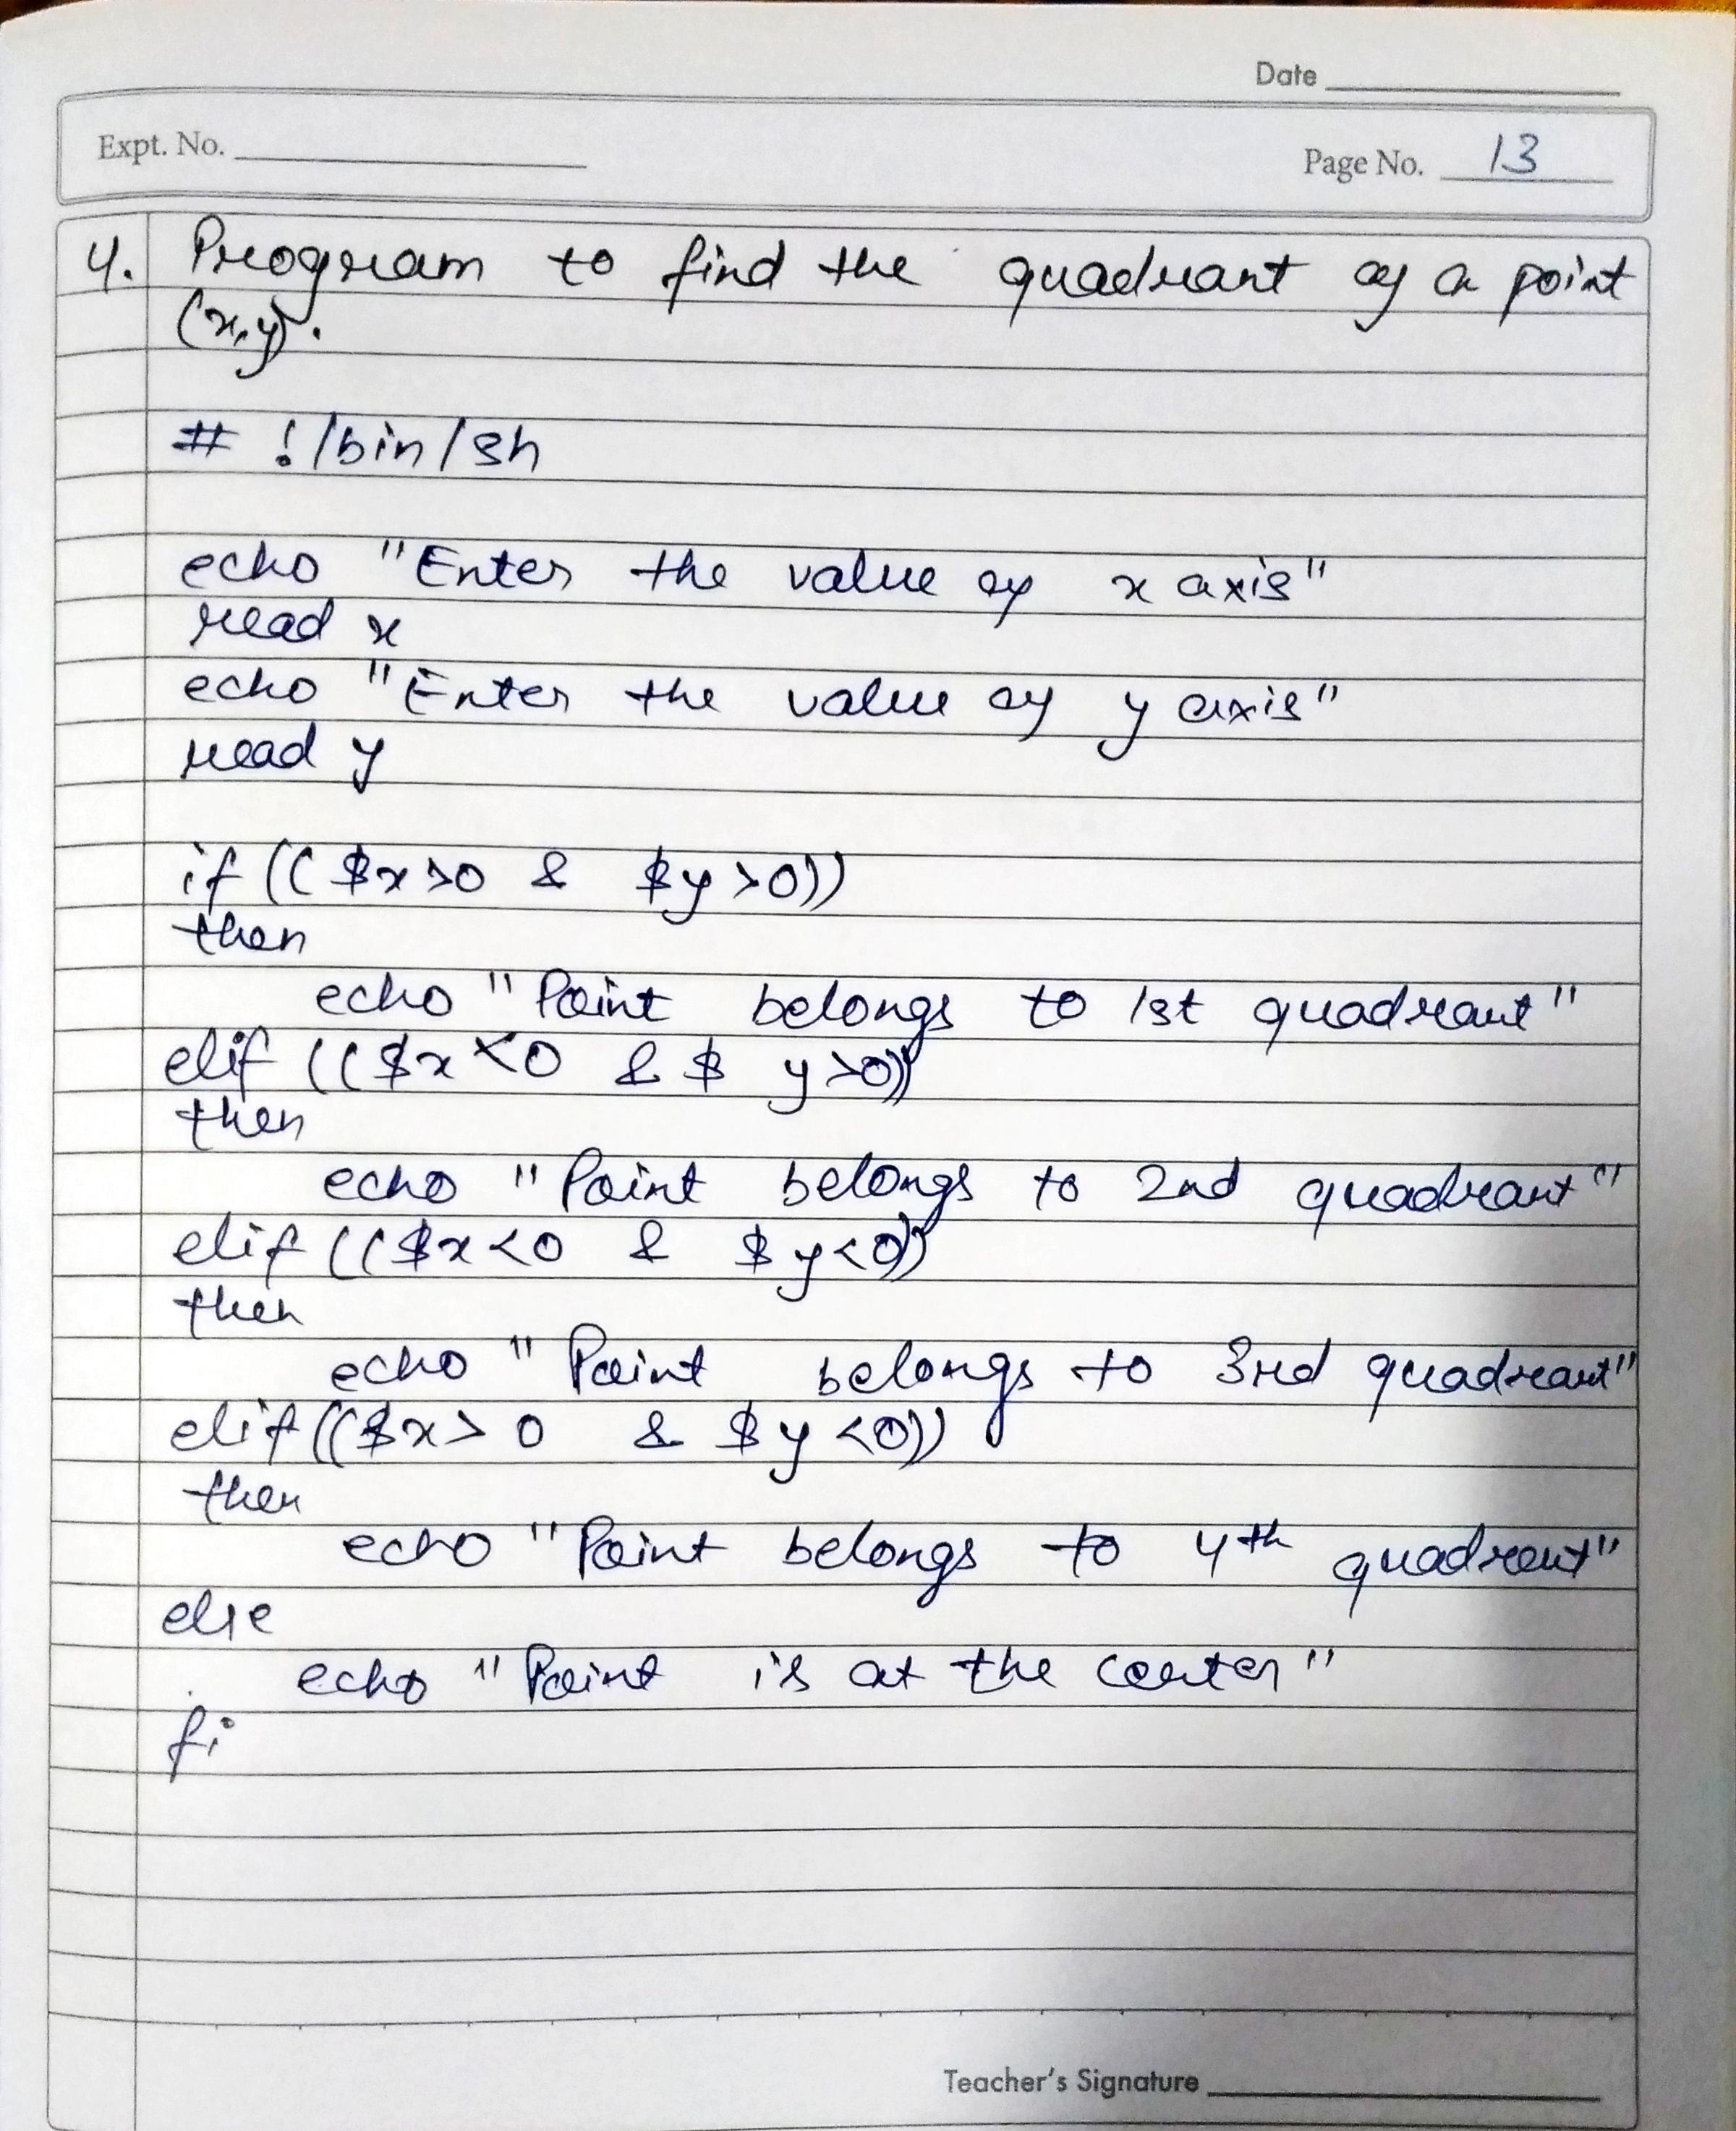 Date
Expt. No.
Page No. 13
4. Program to find the quadrant of a point
(x,y).
# !/bin/sh
echo "Enter the value of x axis"
read x
echo "Enter the value of y axis"
read y
if (( $x>0 & $y>0))
then
echo "Point belongs to 1st quadrant"
elif (($x<0 & $ y>0))
then
echo "Point belongs to 2nd quadrant"
elif (($x<0 & $y<0))
then
echo "Point belongs to 3rd quadrant"
elif(($x> 0 & $y<0))
then
echo "Point belongs to 4th quadrant"
else
echo "Point is at the center"
fi
Teacher's Signature